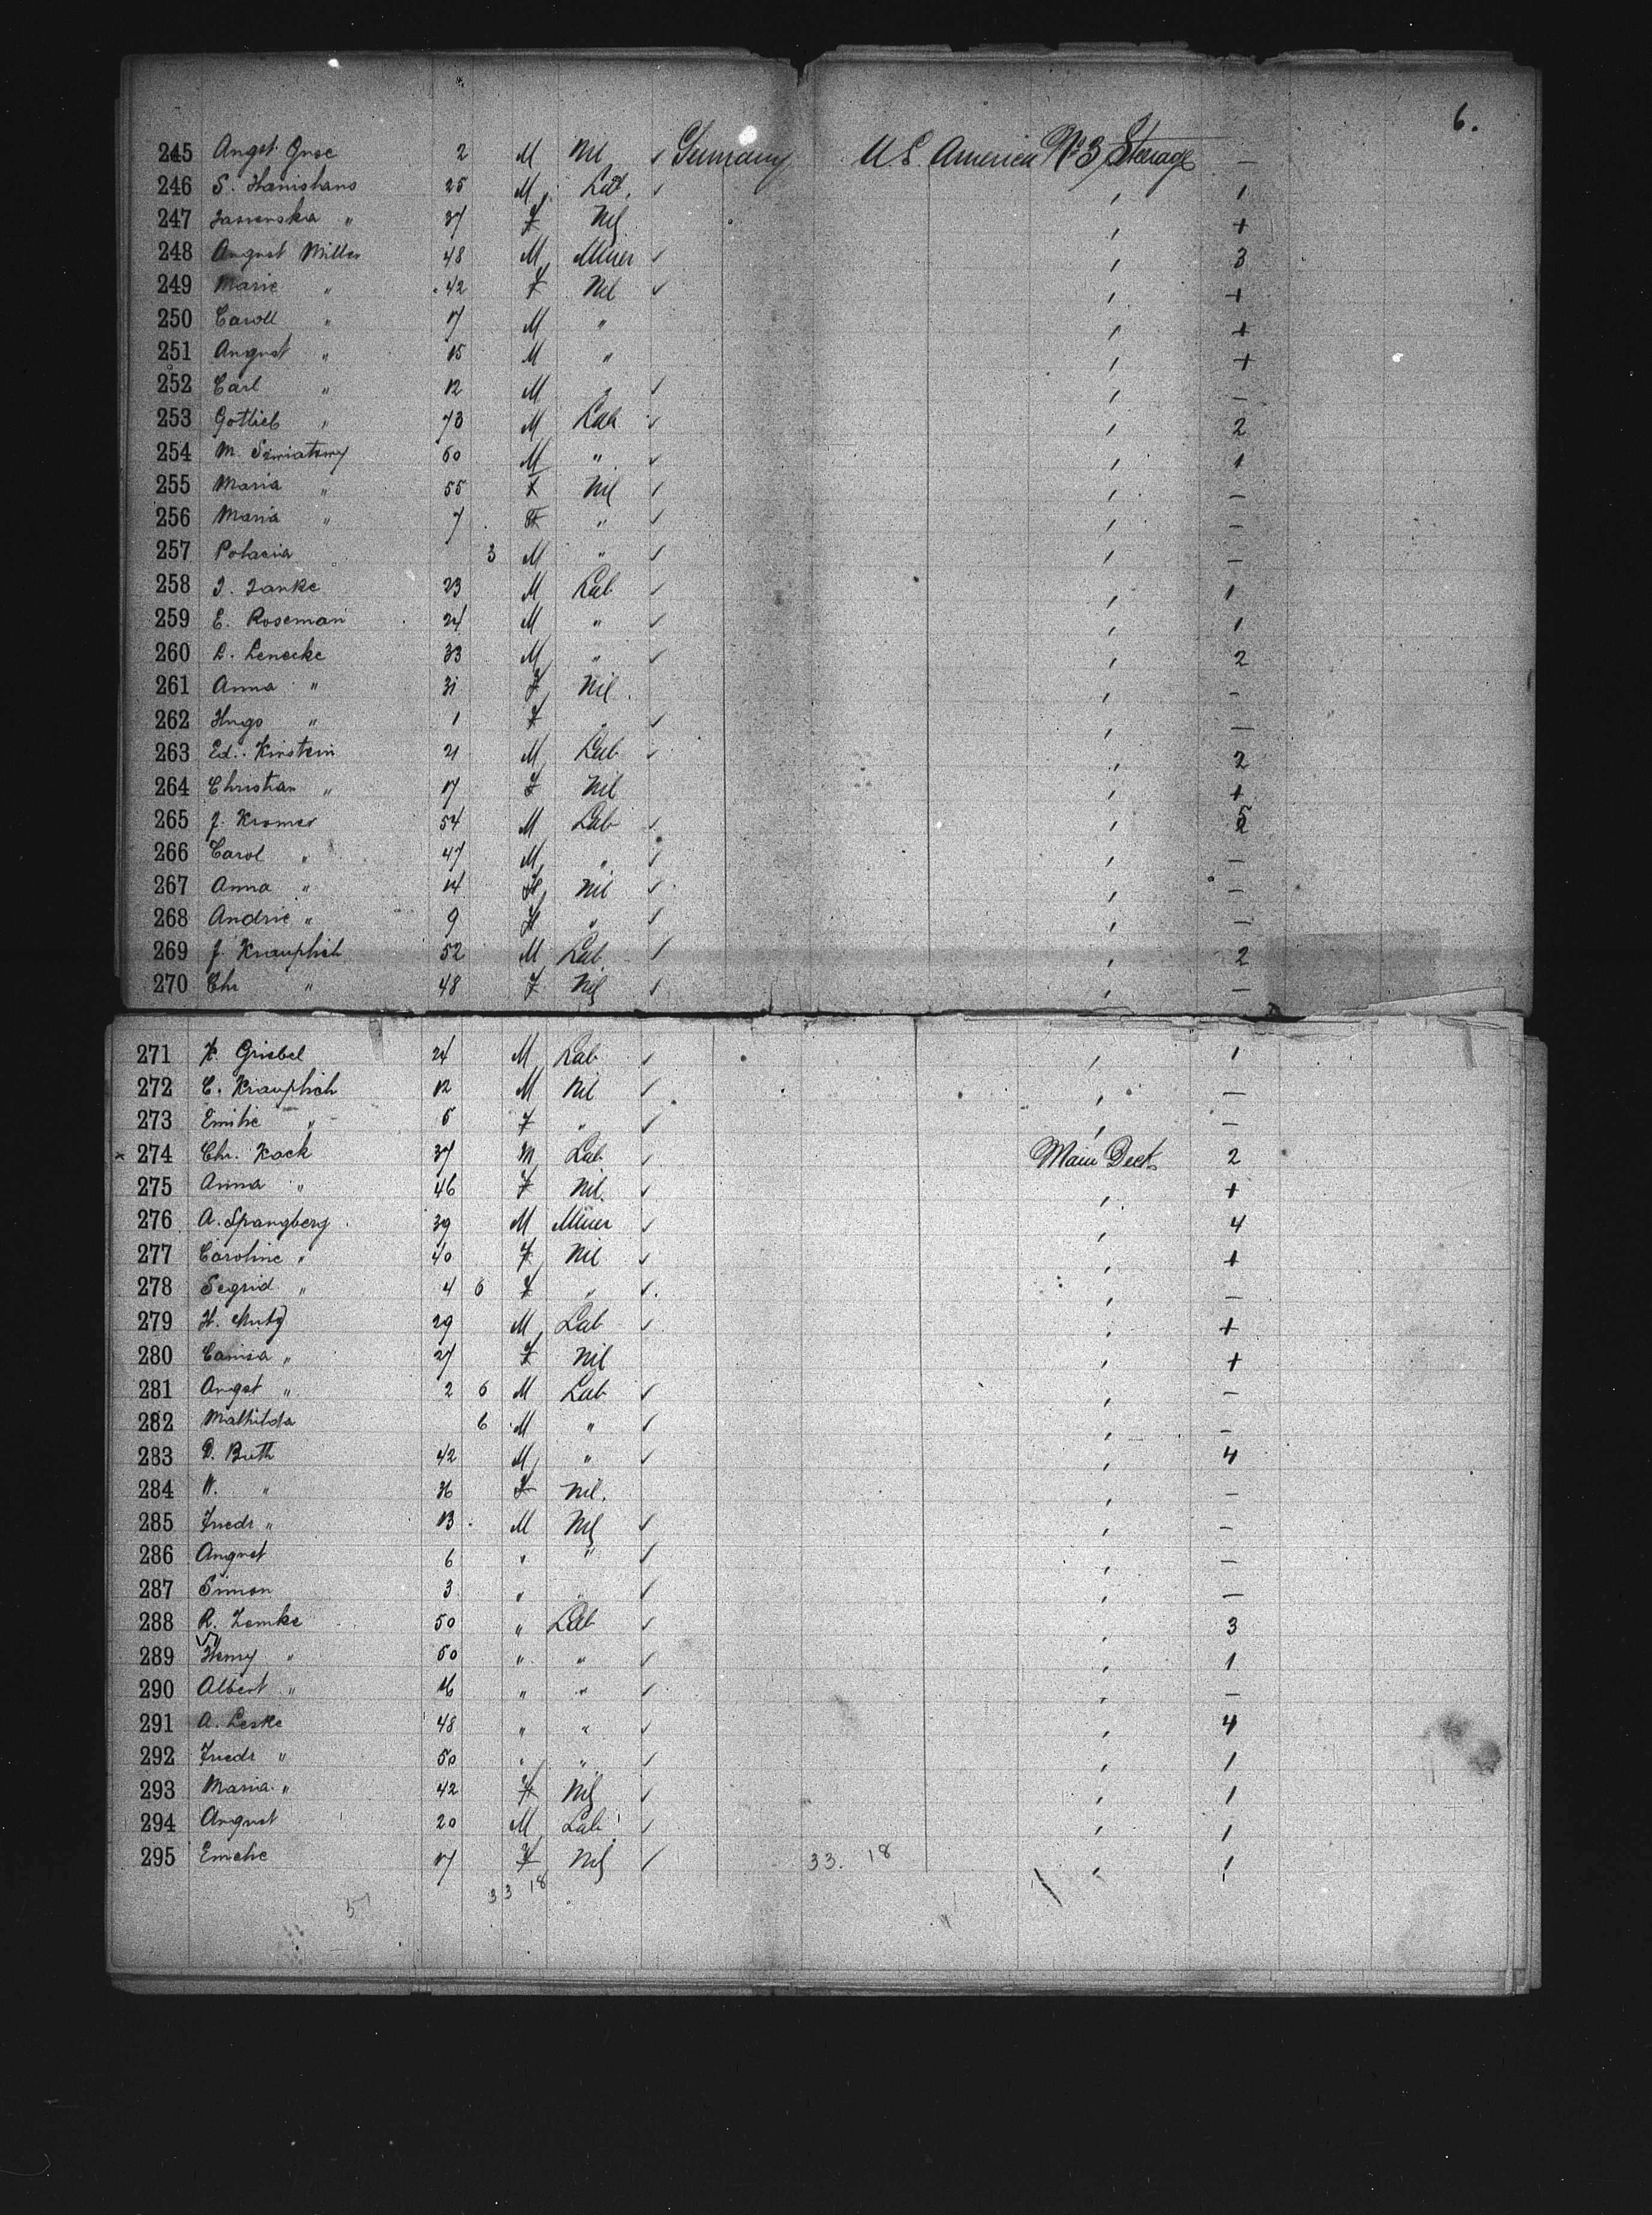 6.
245 Angst. Gnoe 2 M Nil ✓ Germany U S. America No 3 Steerage —
246 S. Hanishans 25 M Lab. ✓ , 1
247 " 37 F Nil , +
248 August Miller 48 M Miner ✓ , 3
249 Marie " 42 F Nil ✓ , +
250 Caroll " 17 M " , +
251 August " 15 M " , +
252 Carl " 12 M " ✓ , —
253 Gottlieb " 73 M Lab ✓ , 2
254 M. 60 M " ✓ , 1
255 Maria " 55 F Nil ✓ , —
256 Maria " 7 F " ✓ , —
257 Polacia 3 M " ✓ , —
258 J. Janke 23 M Lab ✓ , 1
259 E. Roseman 24 M " ✓ , 1
260 L. Lenecke 33 M " ✓ , 2
261 Anna " 31 F Nil , —
262 Hugo " 1 F " ✓ , —
263 Ed. Kirstein 21 M Lab ✓ , 2
264 Christian " 17 F Nil , +
265 J. Kromer 54 M Lab ✓ ,
266 Carol " 47 M " ✓ , —
267 Anna " 14 F Nil ✓ , —
268 Andrie " 9 F " ✓ , —
269 J. Krauphich 52 M Lab ✓ , 2
270 Chr " 48 F Nil ✓ , —
271 K. Griebel 24 M Lab ✓ , 1
272 C. Krauphich 12 M Nil ✓ , —
273 Emilie " 5 F " ✓ , —
x 274 Chr. Kock 37 M Lab ✓ Main Deck 2
275 Anna " 46 F Nil. ✓ , +
276 A. Spangberg 39 M Miner ✓ , 4
277 Caroline " 40 F Nil ✓ , +
278 Segrid " 4 6 F " ✓ , —
279 H. Mutz 29 M Lab ✓ , +
280 " 27 F Nil , +
281 Angst " 2 6 M Lab ✓ , —
282 Mathilda 6 M " ✓ , —
283 D. Buth 42 M " ✓ , 4
284 W. " 36 F Nil. , —
285 Friedr " 13 M Nil ✓ , —
286 August 6 " " ✓ , —
287 Simon 3 " " ✓ , —
288 R. Zemke 50 " Lab ✓ , 3
289 Henry " 50 " " ✓ , 1
290 Albert " 16 " " ✓ , —
291 A. Leske 48 " " ✓ , 4
292 Friedr " 50 " " ✓ , 1
293 Maria " 42 F Nil ✓ , 1
294 August 20 M Lab ✓ , 1
295 Emelie 17 F Nil ✓ 33. 18 , 1
33 18
51